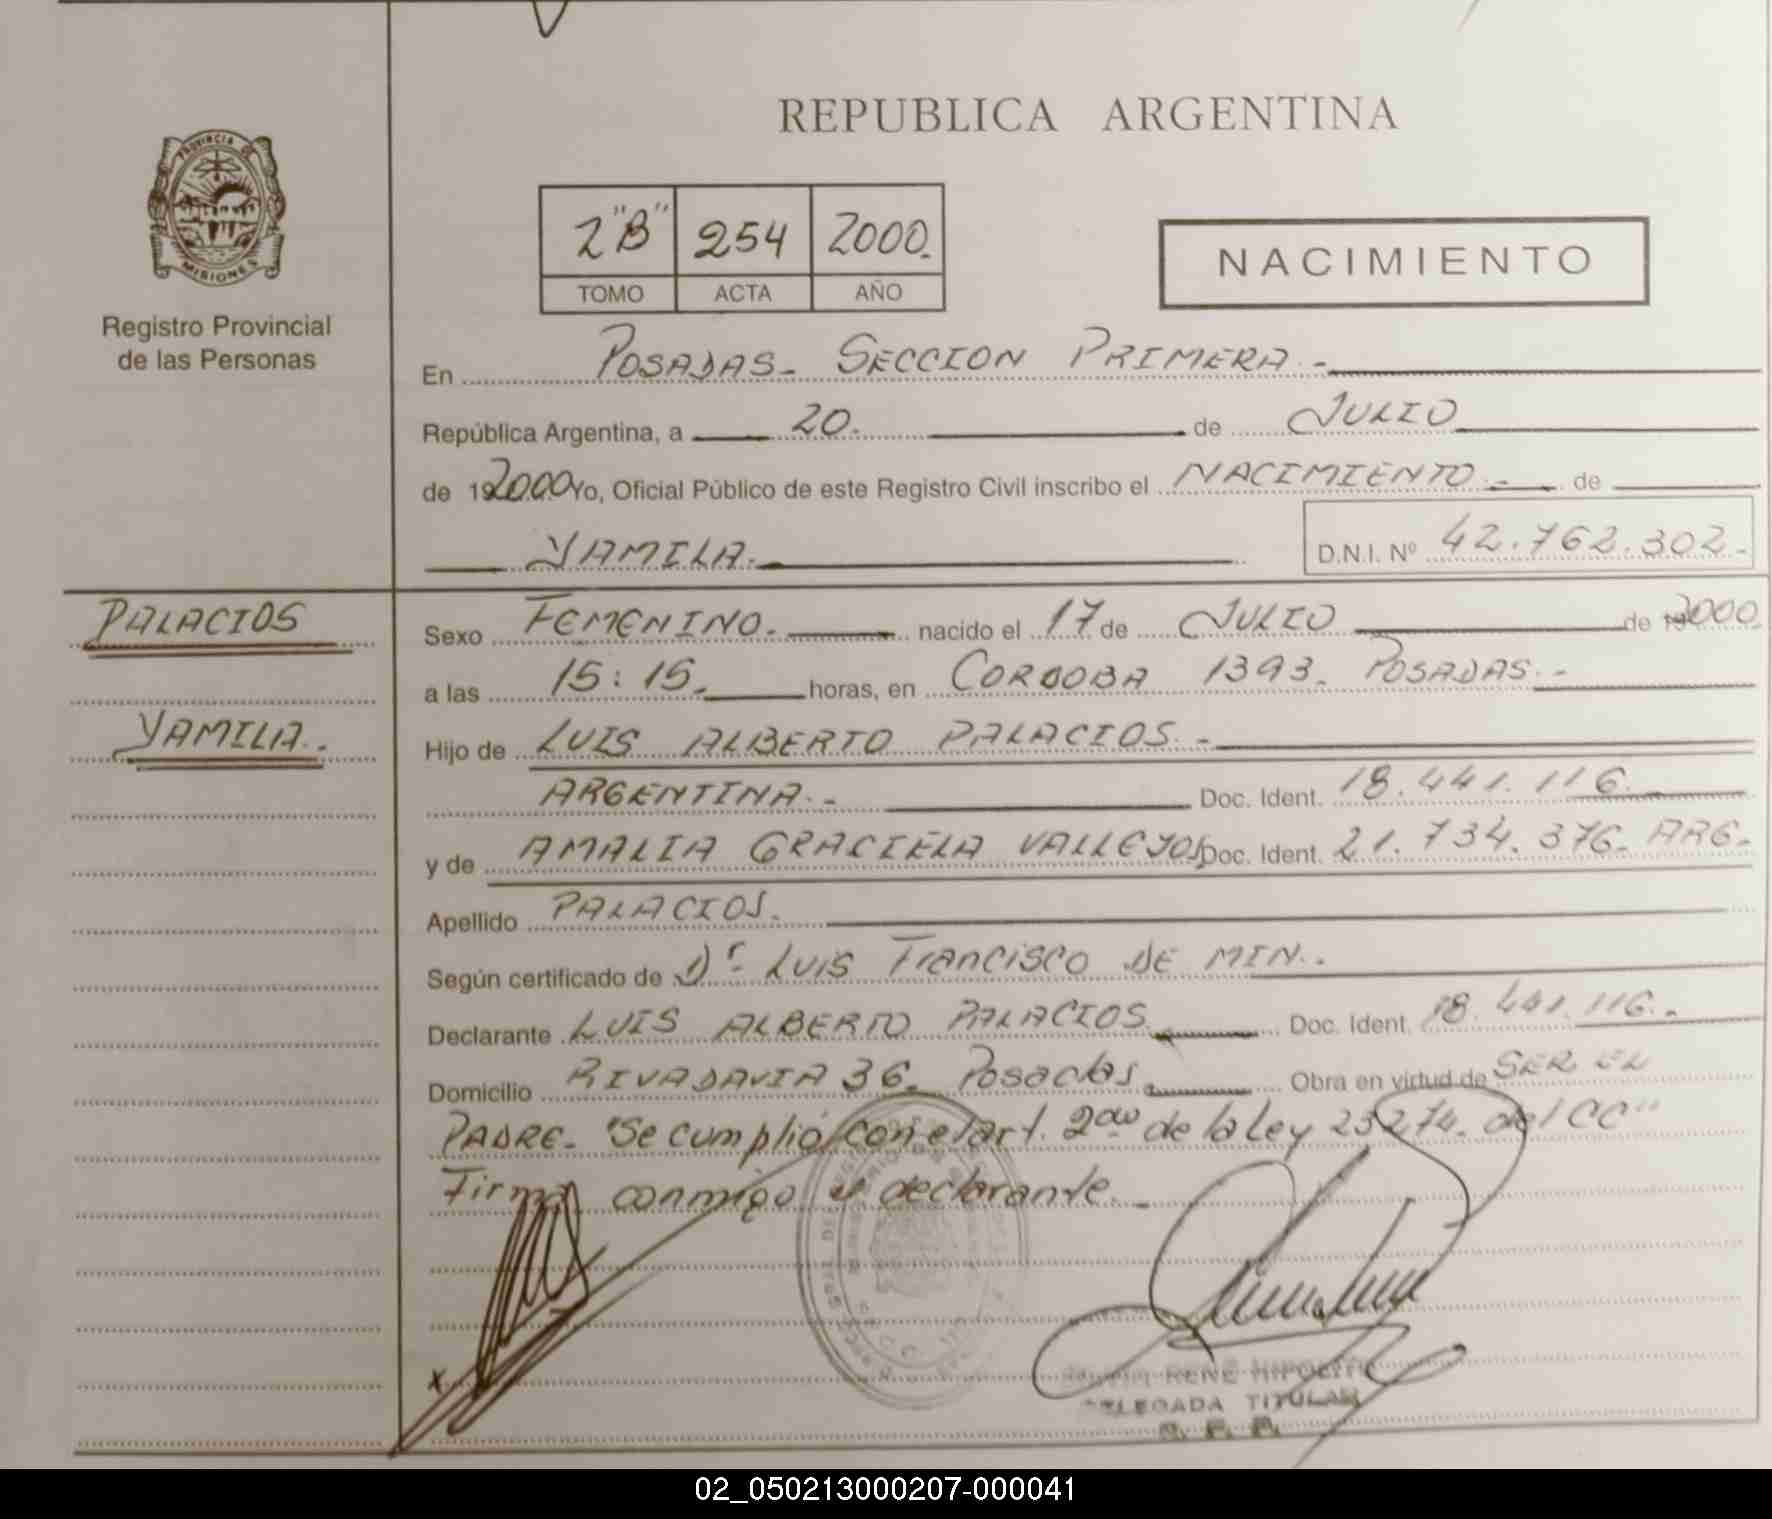 REPUBLICA ARGENTINA
PROVINCIA DE
MISIONES
Registro Provincial
de las Personas
2"B" 254 2000.
TOMO ACTA AÑO
NACIMIENTO
En POSADAS- SECCION PRIMERA.-
República Argentina, a 20. de JULIO
de 192000 Yo, Oficial Público de este Registro Civil inscribo el NACIMIENTO.- de
YAMILA. D.N.I. Nº 42.762.302.-
PALACIOS
YAMILA.
Sexo FEMENINO. nacido el 17 de JULIO de 2000
a las 15:15. horas, en CORDOBA 1393. POSADAS.-
Hijo de LUIS ALBERTO PALACIOS.-
ARGENTINA.- Doc. Ident. 18.441.116.
y de AMALIA GRACIELA VALLEJOS Doc. Ident. 21.734.376. ARG.
Apellido PALACIOS.
Según certificado de Dr. LUIS FranCiSCO DE MIN..
Declarante LUIS ALBERTO PALACIOS. Doc. Ident. 18.441.116..
Domicilio RIVADAVIA 36. Posadas. Obra en virtud de SER EL
PADRE. "Se cumplió con el art. 2do de la Ley 25274. del CC"
Firma conmigo el declarante.-
x
RENE HIPOLITO
DELEGADA TITULAR
02_050213000207-000041